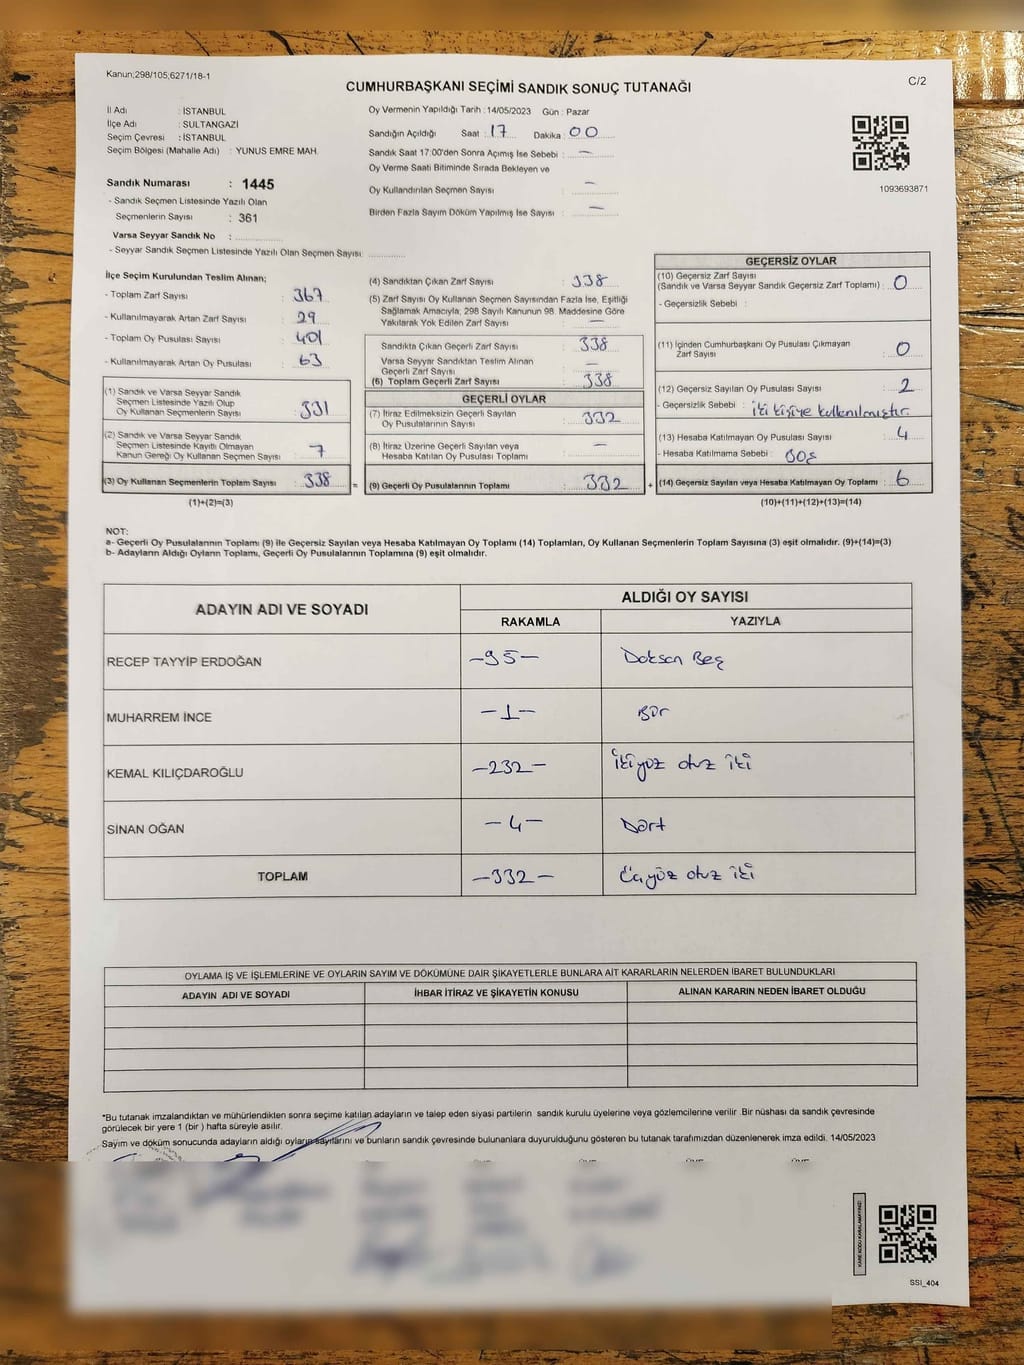 Kanun;298/105;6271/18-1
C/2
CUMHURBAŞKANI SEÇİMİ SANDIK SONUÇ TUTANAĞI
İl Adı : İSTANBUL
İlçe Adı : SULTANGAZİ
Seçim Çevresi : İSTANBUL
Seçim Bölgesi (Mahalle Adı) : YUNUS EMRE MAH.
Sandık Numarası : 1445
- Sandık Seçmen Listesinde Yazılı Olan
Seçmenlerin Sayısı : 361
Varsa Seyyar Sandık No :
- Seyyar Sandık Seçmen Listesinde Yazılı Olan Seçmen Sayısı:
Oy Vermenin Yapıldığı Tarih : 14/05/2023 Gün : Pazar
Sandığın Açıldığı Saat : 17 Dakika : 00
Sandık Saat 17:00'den Sonra Açımış İse Sebebi : —
Oy Verme Saati Bitiminde Sırada Bekleyen ve
Oy Kullandırılan Seçmen Sayısı : —
Birden Fazla Sayım Döküm Yapılmış İse Sayısı : —
1093693871
İlçe Seçim Kurulundan Teslim Alınan;
- Toplam Zarf Sayısı : 367
- Kullanılmayarak Artan Zarf Sayısı : 29
- Toplam Oy Pusulası Sayısı : 401
- Kullanılmayarak Artan Oy Pusulası : 63
(1) Sandık ve Varsa Seyyar Sandık
Seçmen Listesinde Yazılı Olup
Oy Kullanan Seçmenlerin Sayısı : 331
(2) Sandık ve Varsa Seyyar Sandık
Seçmen Listesinde Kayıtlı Olmayan
Kanun Gereği Oy Kullanan Seçmen Sayısı : 7
(3) Oy Kullanan Seçmenlerin Toplam Sayısı : 338
(1)+(2)=(3)
(4) Sandıktan Çıkan Zarf Sayısı : 338
(5) Zarf Sayısı Oy Kullanan Seçmen Sayısından Fazla İse, Eşitliği
Sağlamak Amacıyla; 298 Sayılı Kanunun 98. Maddesine Göre
Yakılarak Yok Edilen Zarf Sayısı : —
Sandıkta Çıkan Geçerli Zarf Sayısı : 338
Varsa Seyyar Sandıktan Teslim Alınan
Geçerli Zarf Sayısı : —
(6) Toplam Geçerli Zarf Sayısı : 338
GEÇERLİ OYLAR
(7) İtiraz Edilmeksizin Geçerli Sayılan
Oy Pusulalarının Sayısı : 332
(8) İtiraz Üzerine Geçerli Sayılan veya
Hesaba Katılan Oy Pusulası Toplamı : —
(9) Geçerli Oy Pusulalarının Toplamı : 332
GEÇERSİZ OYLAR
(10) Geçersiz Zarf Sayısı
(Sandık ve Varsa Seyyar Sandık Geçersiz Zarf Toplamı) : 0
- Geçersizlik Sebebi :
(11) İçinden Cumhurbaşkanı Oy Pusulası Çıkmayan
Zarf Sayısı : 0
(12) Geçersiz Sayılan Oy Pusulası Sayısı : 2
- Geçersizlik Sebebi : iki kişiye kullanılmıştır
(13) Hesaba Katılmayan Oy Pusulası Sayısı : 4
- Hesaba Katılmama Sebebi : BOŞ
(14) Geçersiz Sayılan veya Hesaba Katılmayan Oy Toplamı : 6
(10)+(11)+(12)+(13)=(14)
NOT:
a- Geçerli Oy Pusulalarının Toplamı (9) ile Geçersiz Sayılan veya Hesaba Katılmayan Oy Toplamı (14) Toplamları, Oy Kullanan Seçmenlerin Toplam Sayısına (3) eşit olmalıdır. (9)+(14)=(3)
b- Adayların Aldığı Oyların Toplamı, Geçerli Oy Pusulalarının Toplamına (9) eşit olmalıdır.
ADAYIN ADI VE SOYADI ALDIĞI OY SAYISI
RAKAMLA YAZIYLA
RECEP TAYYİP ERDOĞAN -95- Doksan Beş
MUHARREM İNCE -1- Bir
KEMAL KILIÇDAROĞLU -232- İkiyüz otuz iki
SİNAN OĞAN -4- Dört
TOPLAM -332- Üçyüz otuz iki
OYLAMA İŞ VE İŞLEMLERİNE VE OYLARIN SAYIM VE DÖKÜMÜNE DAİR ŞİKAYETLERLE BUNLARA AİT KARARLARIN NELERDEN İBARET BULUNDUKLARI
ADAYIN ADI VE SOYADI İHBAR İTİRAZ VE ŞİKAYETİN KONUSU ALINAN KARARIN NEDEN İBARET OLDUĞU
*Bu tutanak imzalandıktan ve mühürlendikten sonra seçime katılan adayların ve talep eden siyasi partilerin sandık kurulu üyelerine veya gözlemcilerine verilir .Bir nüshası da sandık çevresinde
görülecek bir yere 1 (bir ) hafta süreyle asılır.
Sayım ve döküm sonucunda adayların aldığı oyların sayılarını ve bunların sandık çevresinde bulunanlara duyurulduğunu gösteren bu tutanak tarafımızdan düzenlenerek imza edildi. 14/05/2023
KARE KODU KARALAMAYINIZ!
SSI_404